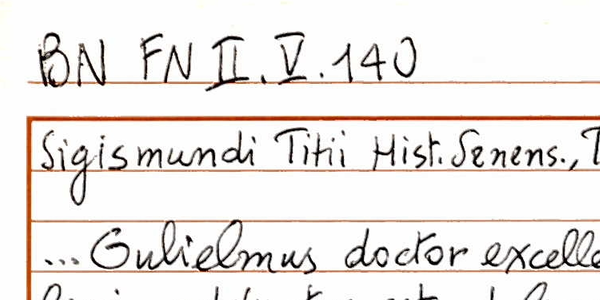 BN FN II.V.140
Sigismundi Titii Hist. Senens., T
... Gulielmus doctor excelle